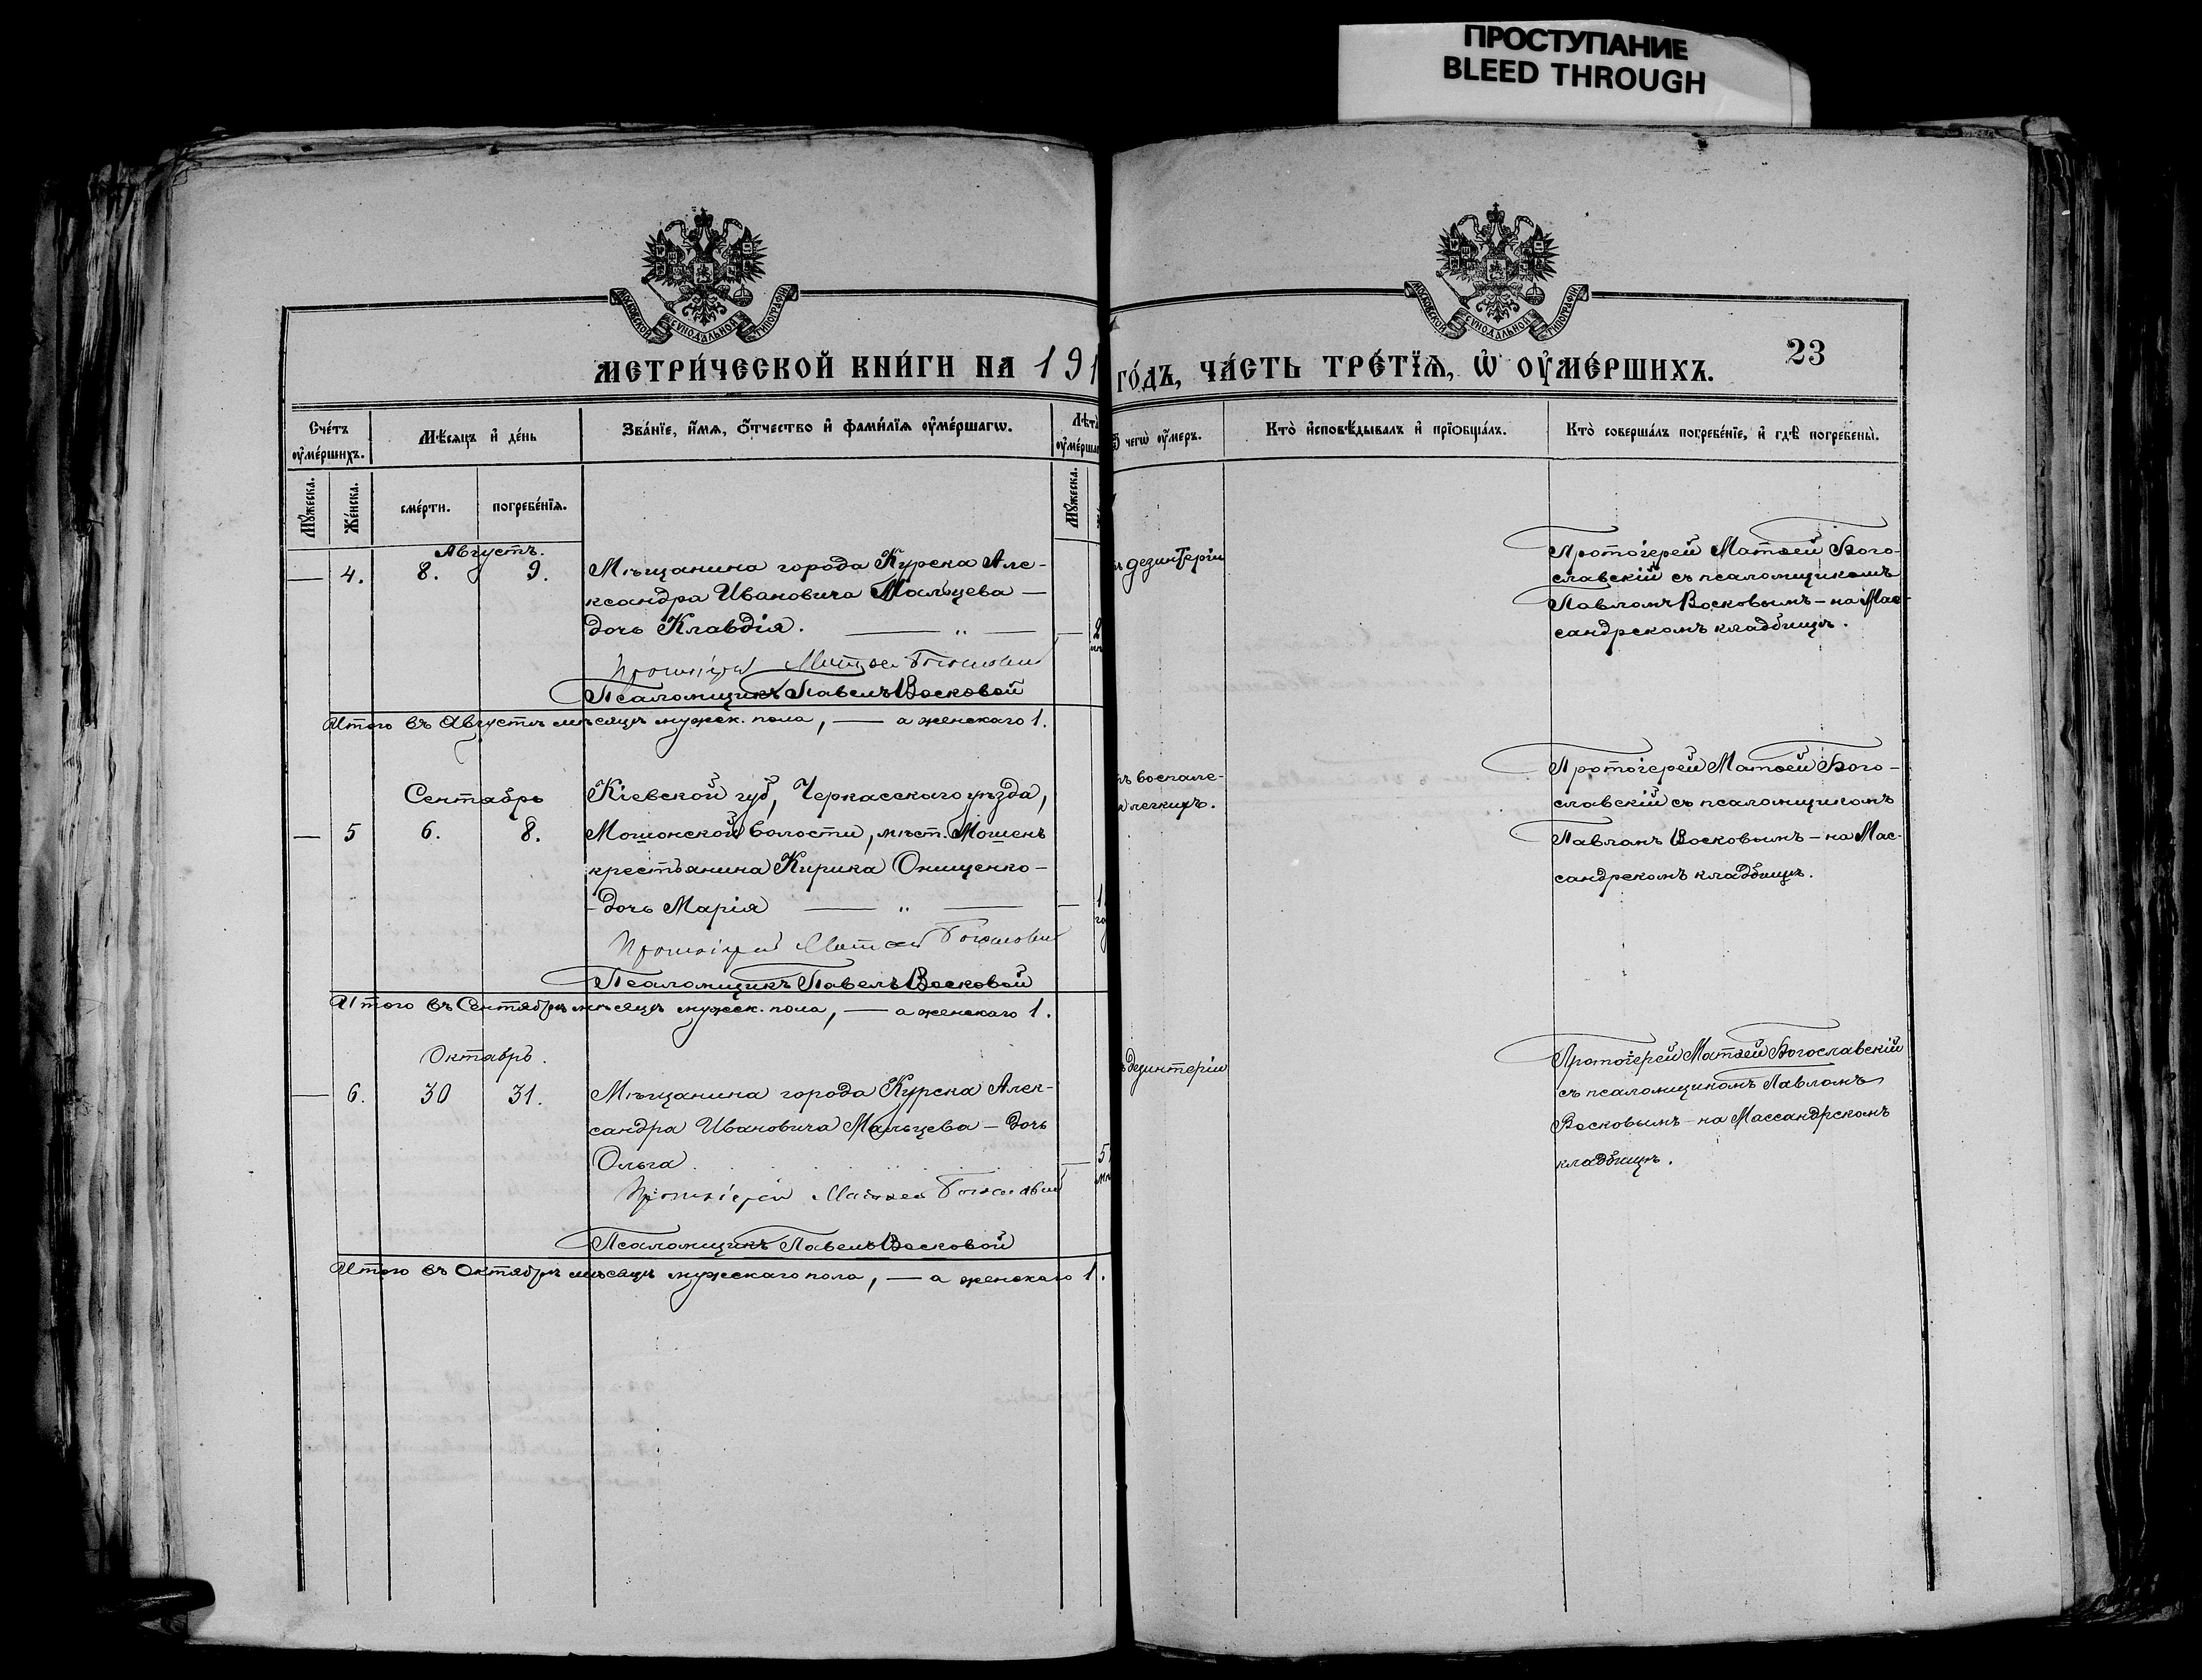 ПРОСТУПАНИЕ
BLEED THROUGH
МОСКОВСКОЙ СѴНОДАЛЬНОЙ ТИПОГРАФІИ
МОСКОВСКОЙ СѴНОДАЛЬНОЙ ТИПОГРАФІИ
МЕТРИ́ЧЕСКОЙ КНИ́ГИ НА 191
ГО́ДЪ, ЧА́СТЬ ТРЕ́ТЇѦ, Ѡ҆ ОУ҆МЕ́РШИХЪ.
23
Сче́тъ оу҆ме́ршихъ.
Мѣ́сѧцъ и҆ де́нь
Зва́нїе, и҆́мѧ, ѻ҆́тчество и҆ фами́лїѧ оу҆ме́ршагѡ.
Лѣ́та оу҆ме́ршаг
Ѿ чегѡ̀ оу҆́меръ.
Кто̀ и҆сповѣ́дывалъ и҆ прїѡбща́лъ.
Кто̀ соверша́лъ погребе́нїе, и҆ гдѣ̀ погребены̀.
Мꙋ́жеска.
Же́нска.
сме́рти.
погребе́нїѧ.
Мꙋ́жеска.
Августъ.
— 4. 8. 9.
Мѣщанина города Курска Але-
ксандра Ивановича Мальцева —
дочь Клавдія. — „ — — 2
Протоіерей Матѳей Богословскій
Псаломщикъ Павелъ Восковой
дезинтеріи
Протоіерей Матѳей Бого-
славскій съ псаломщикомъ
Павломъ Восковымъ – на Мас-
сандрскомъ кладбищѣ.
Итого въ Августѣ мѣсяцѣ мужск. пола, — а женскаго 1.
Сентябрь
— 5 6. 8.
Кіевской губ, Черкасскаго уѣзда,
Мошонской волости, мѣст. Мошень
крестьянина Кирика Онищенко –
дочь Марія — „ — — 1
Протоіерей Матѳей Богословскій
Псаломщикъ Павелъ Восковой
ъ воспале-
легкихъ.
Протоіерей Матѳей Бого-
славскій съ псаломщикомъ
Павломъ Восковымъ – на Мас-
сандрскомъ кладбищѣ.
Итого въ Сентябрѣ мѣсяцѣ мужск. пола, — а женскаго 1.
Октябрь.
— 6. 30 31.
Мѣщанина города Курска Алек-
сандра Ивановича Мальцева – дочь
Ольга. — 5
Протоіерей Матѳей Богословскій
Псаломщикъ Павелъ Восковой
дезинтеріи
Протоіерей Матѳей Богославскій
съ псаломщикомъ Павломъ
Восковымъ – на Массандрскомъ
кладбищѣ.
Итого въ Октябрѣ мѣсяцѣ мужскаго пола, — а женскаго 1.